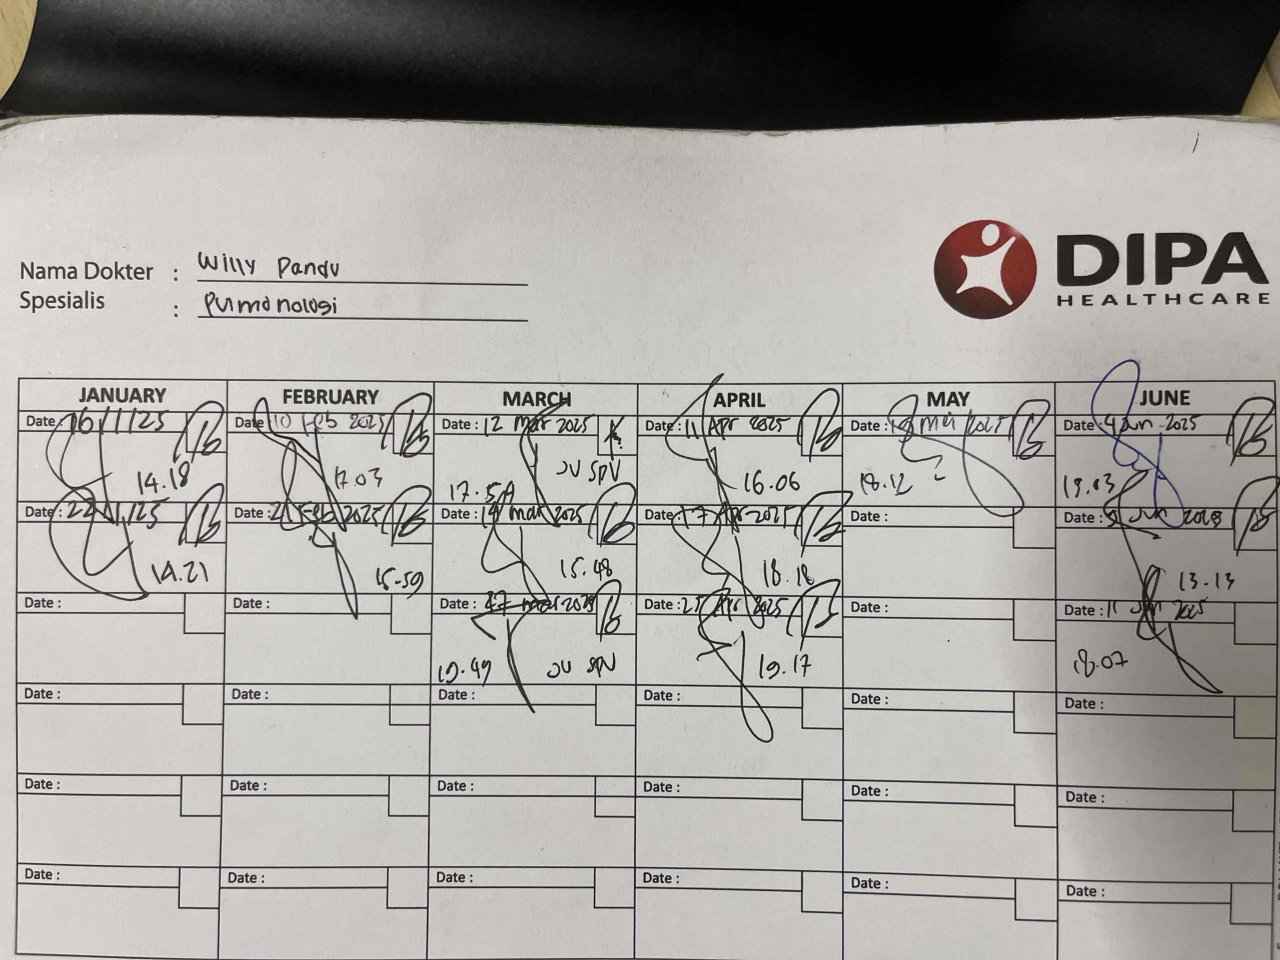 DIPA
HEALTHCARE
Nama Dokter : Willy Pandu
Spesialis : Pumonologi
JANUARY FEBRUARY MARCH APRIL MAY JUNE
Date : 16/1/25 Date : 10 Feb 2025 Date : 12 Mar 2025 Date : 11 Apr 2025 Date : Mei 2025 Date : 4 Jun 2025
JV SPV
14.18 17.03 17.54 16.06 18.12 19.03
Date : 22/1/25 Date : Feb 2025 Date : 19 Mar 2025 Date : 17 Apr 2025 Date : Date : Jun 2025
14.21 15.59 15.48 18.18 13.13
Date : Date : Date : 27 Mar 2025 Date : 25 Apr 2025 Date : Date : 11 Jun 2025
19.49 JV SPV 19.17 18.07
Date : Date : Date : Date : Date : Date :
Date : Date : Date : Date : Date : Date :
Date : Date : Date : Date : Date : Date :